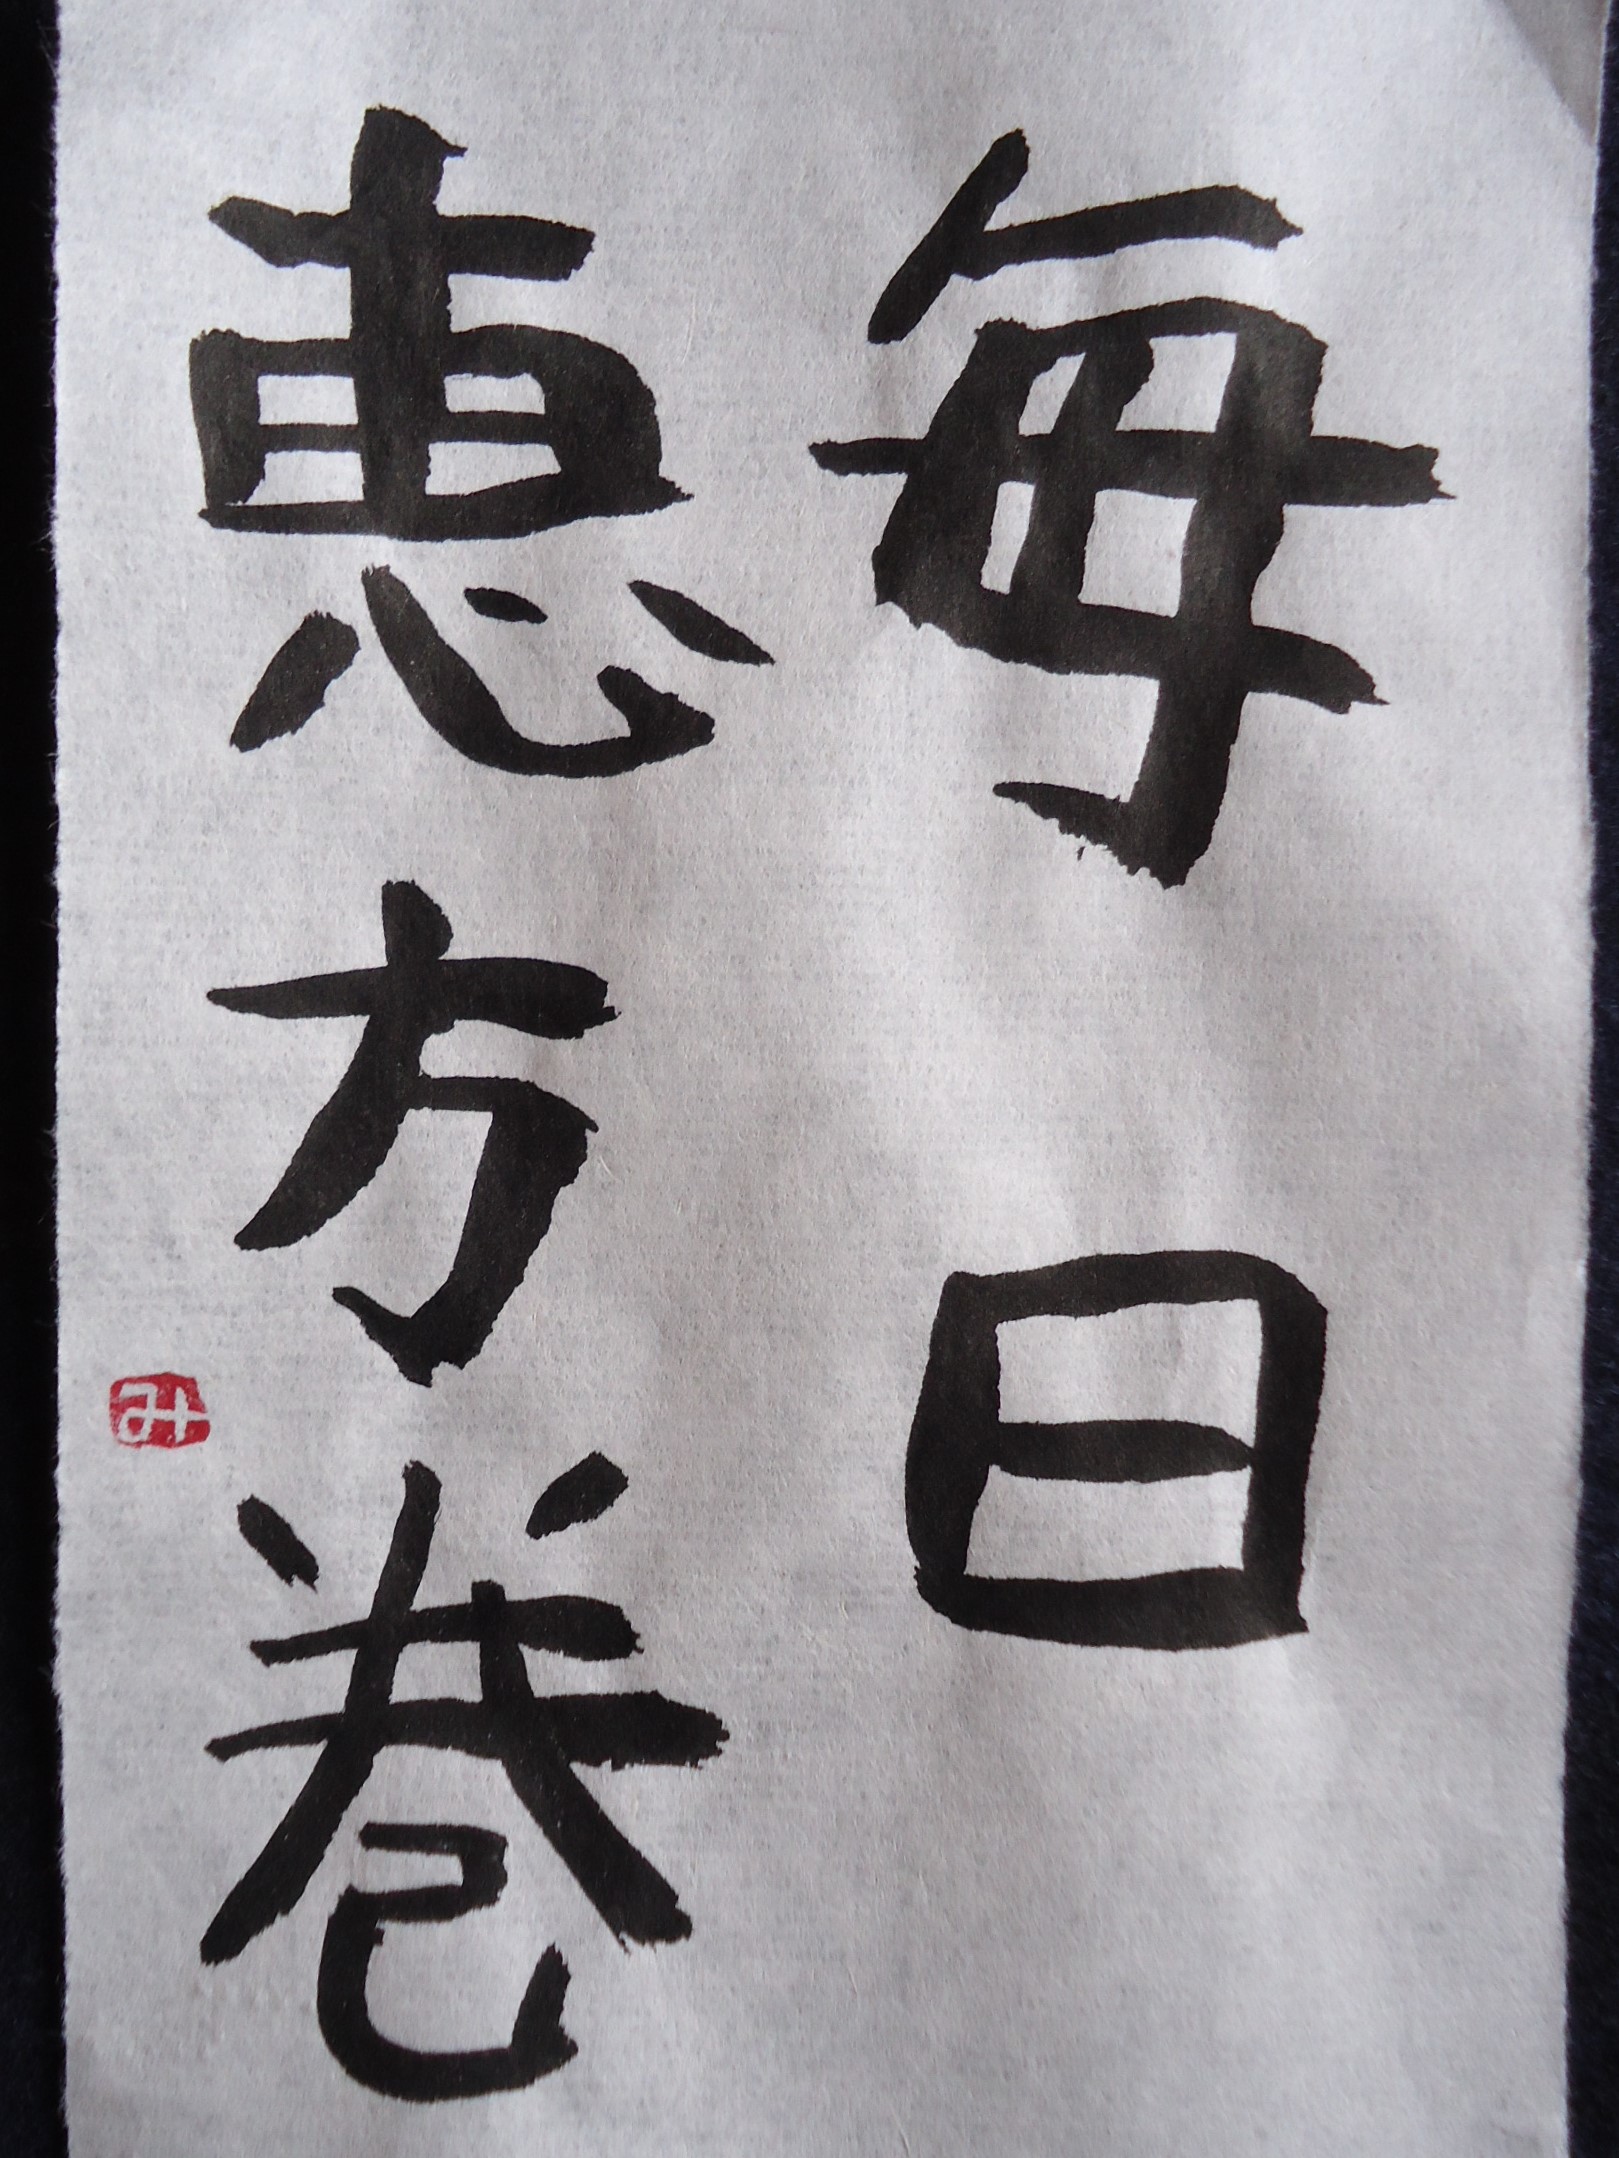 毎日
恵方巻
み